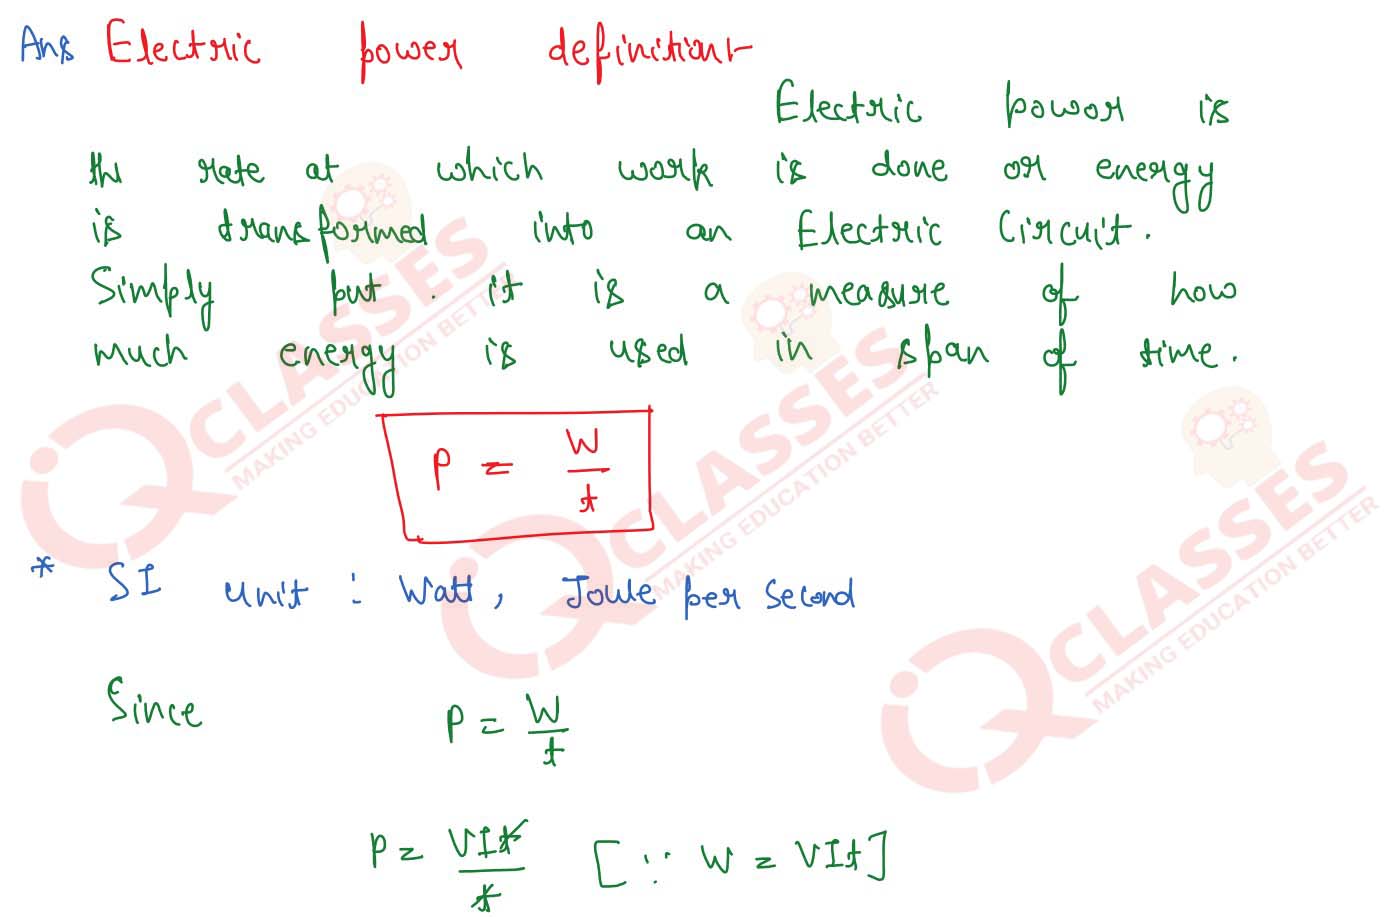 Ans Electric power definition-
Electric power is
the rate at which work is done or energy
is transformed into an Electric Circuit.
Simply put. it is a measure of how
much energy is used in span of time.
P = W/t
* SI unit : Watt, Joule per Second
Since P = W/t
P = VIt/t [∵ W = VIt]
IQ CLASSES
MAKING EDUCATION BETTER
IQ CLASSES
MAKING EDUCATION BETTER
IQ CLASSES
MAKING EDUCATION BETTER